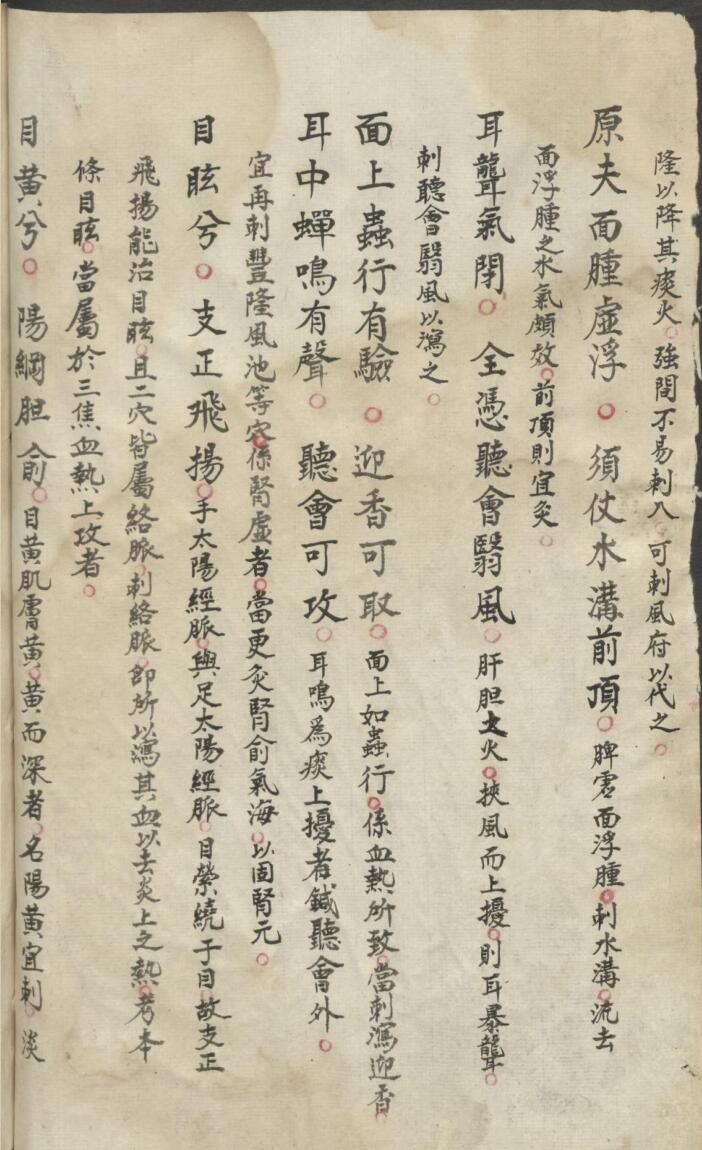 隆以降其痰火。強間不易刺入。可刺風府以代之。
原夫面腫虛浮。須仗水溝前頂。脾虛面浮腫。刺水溝。流去
面浮腫之水氣頗效。前頂則宜灸。
耳聾氣閉。全憑聽會翳風。肝胆之火。挾風而上擾。則耳暴聾。
刺聽會翳風以瀉之。
面上蟲行有驗。迎香可取。面上如蟲行。係血熱所致。當刺瀉迎香。
耳中蟬鳴有聲。聽會可攻。耳鳴爲痰上擾者。鍼聽會外。
宜再刺豐隆風池等穴。係腎虛者。當更灸腎俞氣海。以固腎元。
目眩兮。支正飛揚。手太陽經脈。與足太陽經脈。目縈繞于目。故支正
飛揚能治目眩。且二穴皆屬絡脈。刺絡脈。即所以瀉其血以去炎上之熱。考本
條目眩。當屬於三焦血熱上攻者。
目黃兮。陽綱胆俞。目黃肌膚黃。黃而深者。名陽黃宜刺。淡